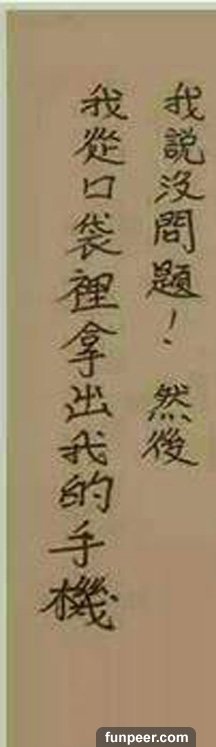 我說沒問題！然後
我從口袋裡拿出我的手機
funpeer.com